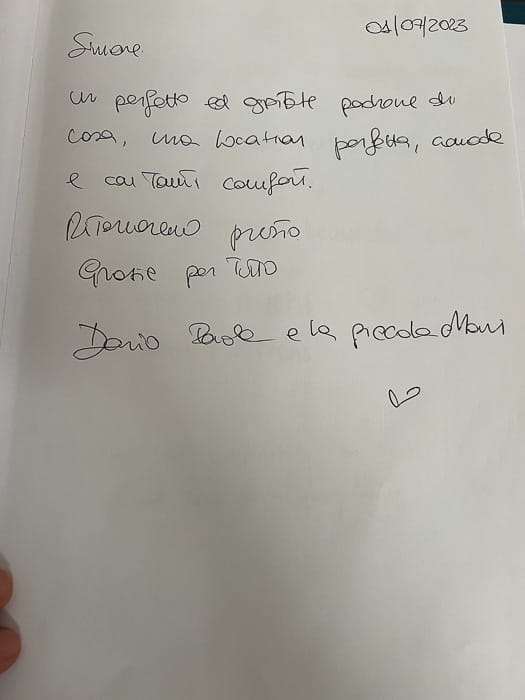 01/07/2023
Simone.
un perfetto ed ospitale padrone di
casa, una location perfetta, comoda
e con tanti comfort.
Ritorneremo presto
Grazie per tutto
Dario Paola e la piccola